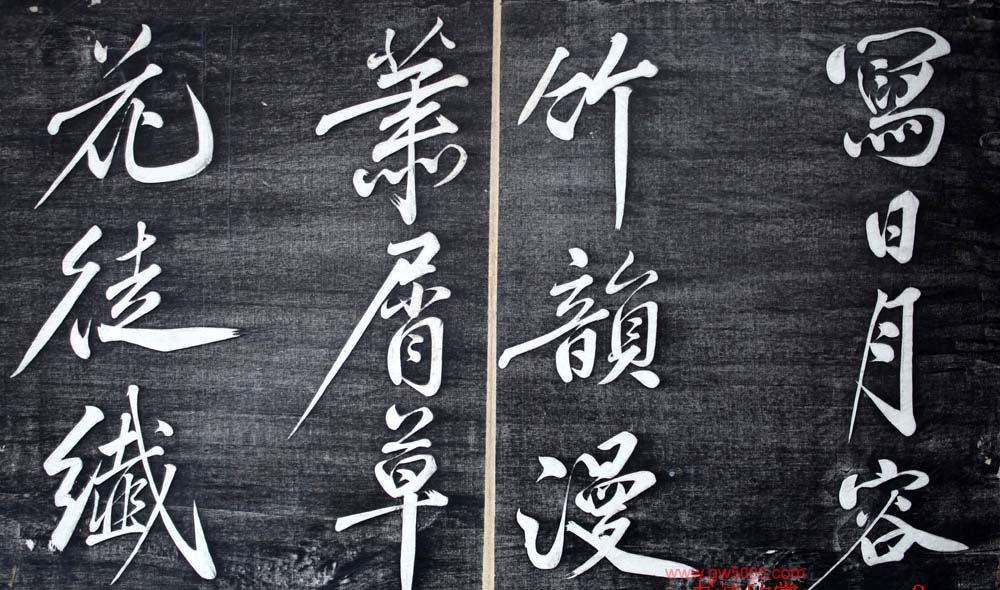 寫日月容
竹韻漫
蕭屑草
花徒纖
www.gw5000.com